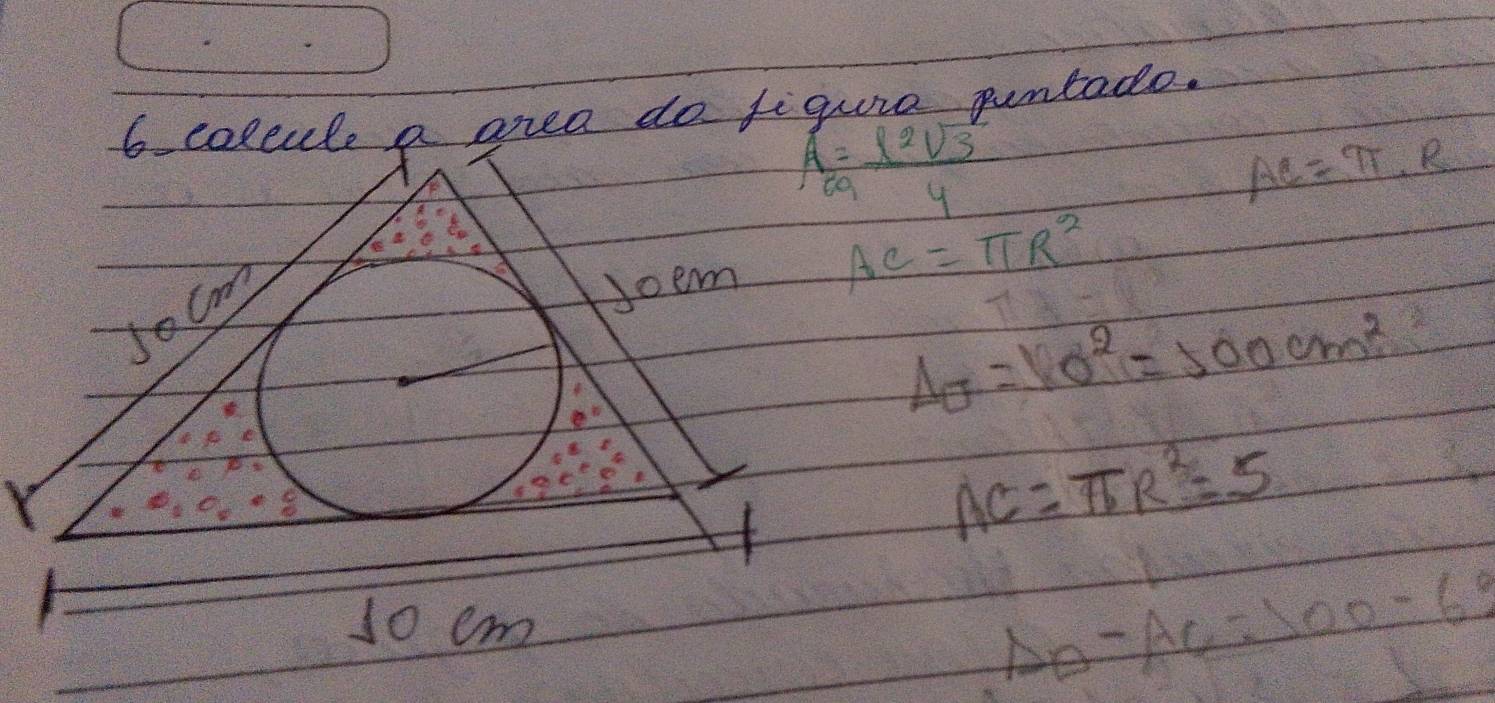 6 calcule a area da figura pintada.
A = l²√3
eq 4
AC = π . R
AC = πR²
10 cm
10 cm
A□ = 10² = 100 cm²
AC = πR² = 5
10 cm
A□ - AC = 100 - 6